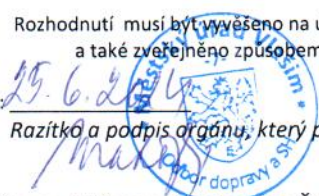 Rozhodnutí musí být vyvěšeno na ú
a také zveřejněno způsobem
25. 6. 2024
Razítko a podpis orgánu, který p
Městský úřad Vlašim
odbor dopravy a SH